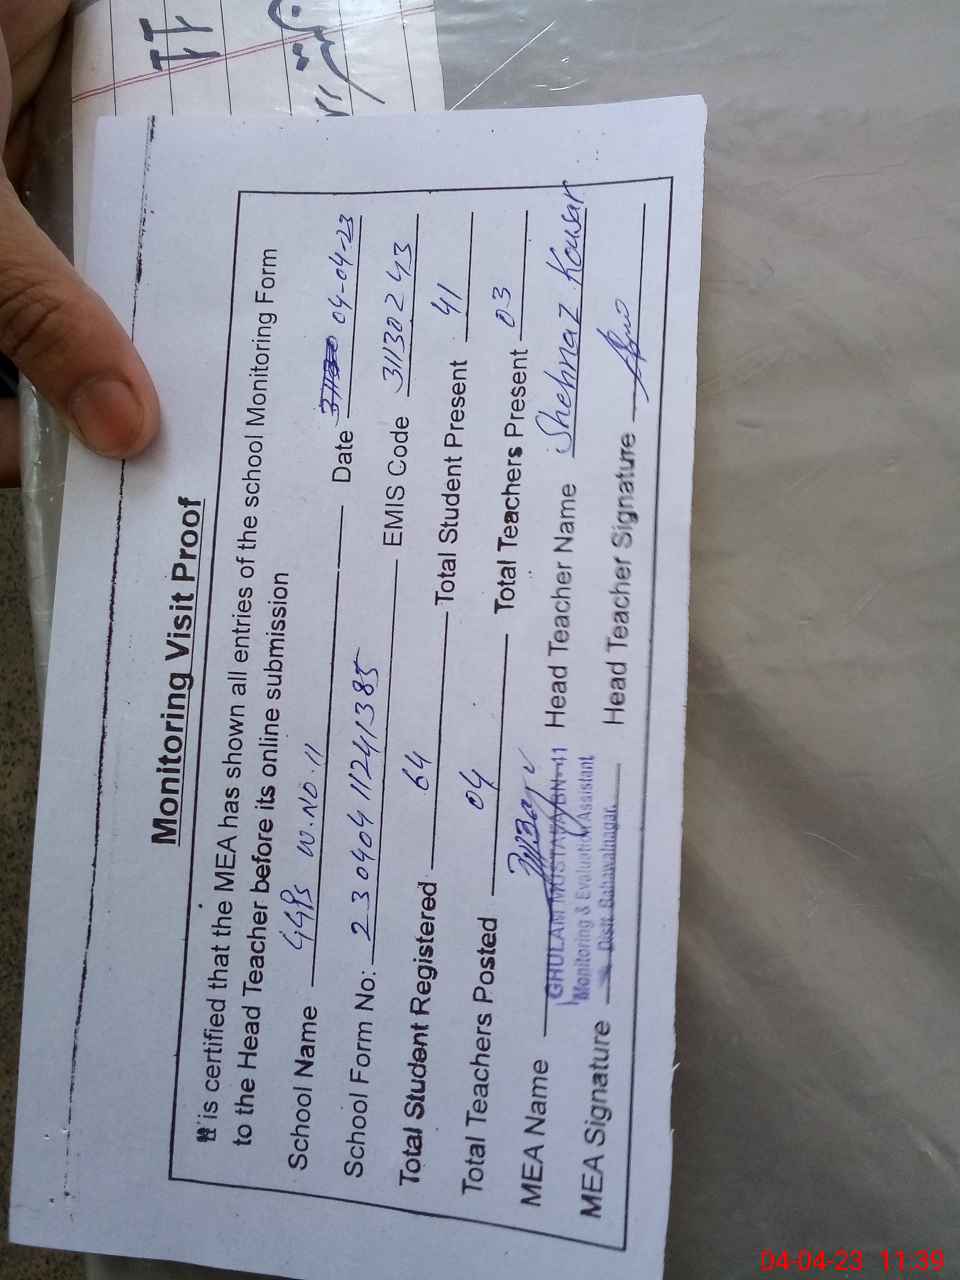 Monitoring Visit Proof
It is certified that the MEA has shown all entries of the school Monitoring Form
to the Head Teacher before its online submission
School Name GGPS W.NO.11 Date 04-04-23
School Form No: 23040411241385 EMIS Code 31130243
Total Student Registered 64 Total Student Present 41
Total Teachers Posted 04 Total Teachers Present 03
MEA Name GHULAM MUSTAFA BN-11 Head Teacher Name Shehnaz Kousar
Monitoring & Evaluation Assistant
MEA Signature Distt. Bahawalnagar. Head Teacher Signature
04-04-23 11:39